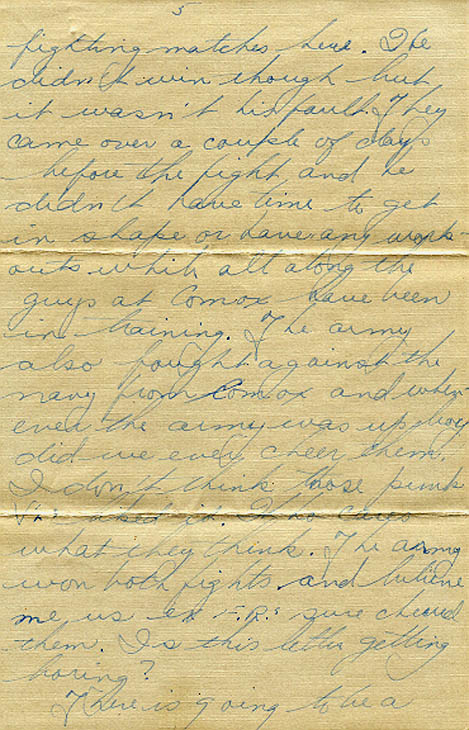 5
fighting matches here. He
didn't win though but
it wasn't his fault. They
came over a couple of days
before the fight and he
didn't have time to get
in shape or have any work-
outs while all along the
guys at Comox have been
in training. The army
also fought against the
navy from Comox and when
ever the army was up boy
did we ever cheer them.
I don't think those punk
liked it. Who cares
what they think. The army
won both fights and believe
me us ex F.R.s sure cheered
them. Is this letter getting
boring?
There is going to be a